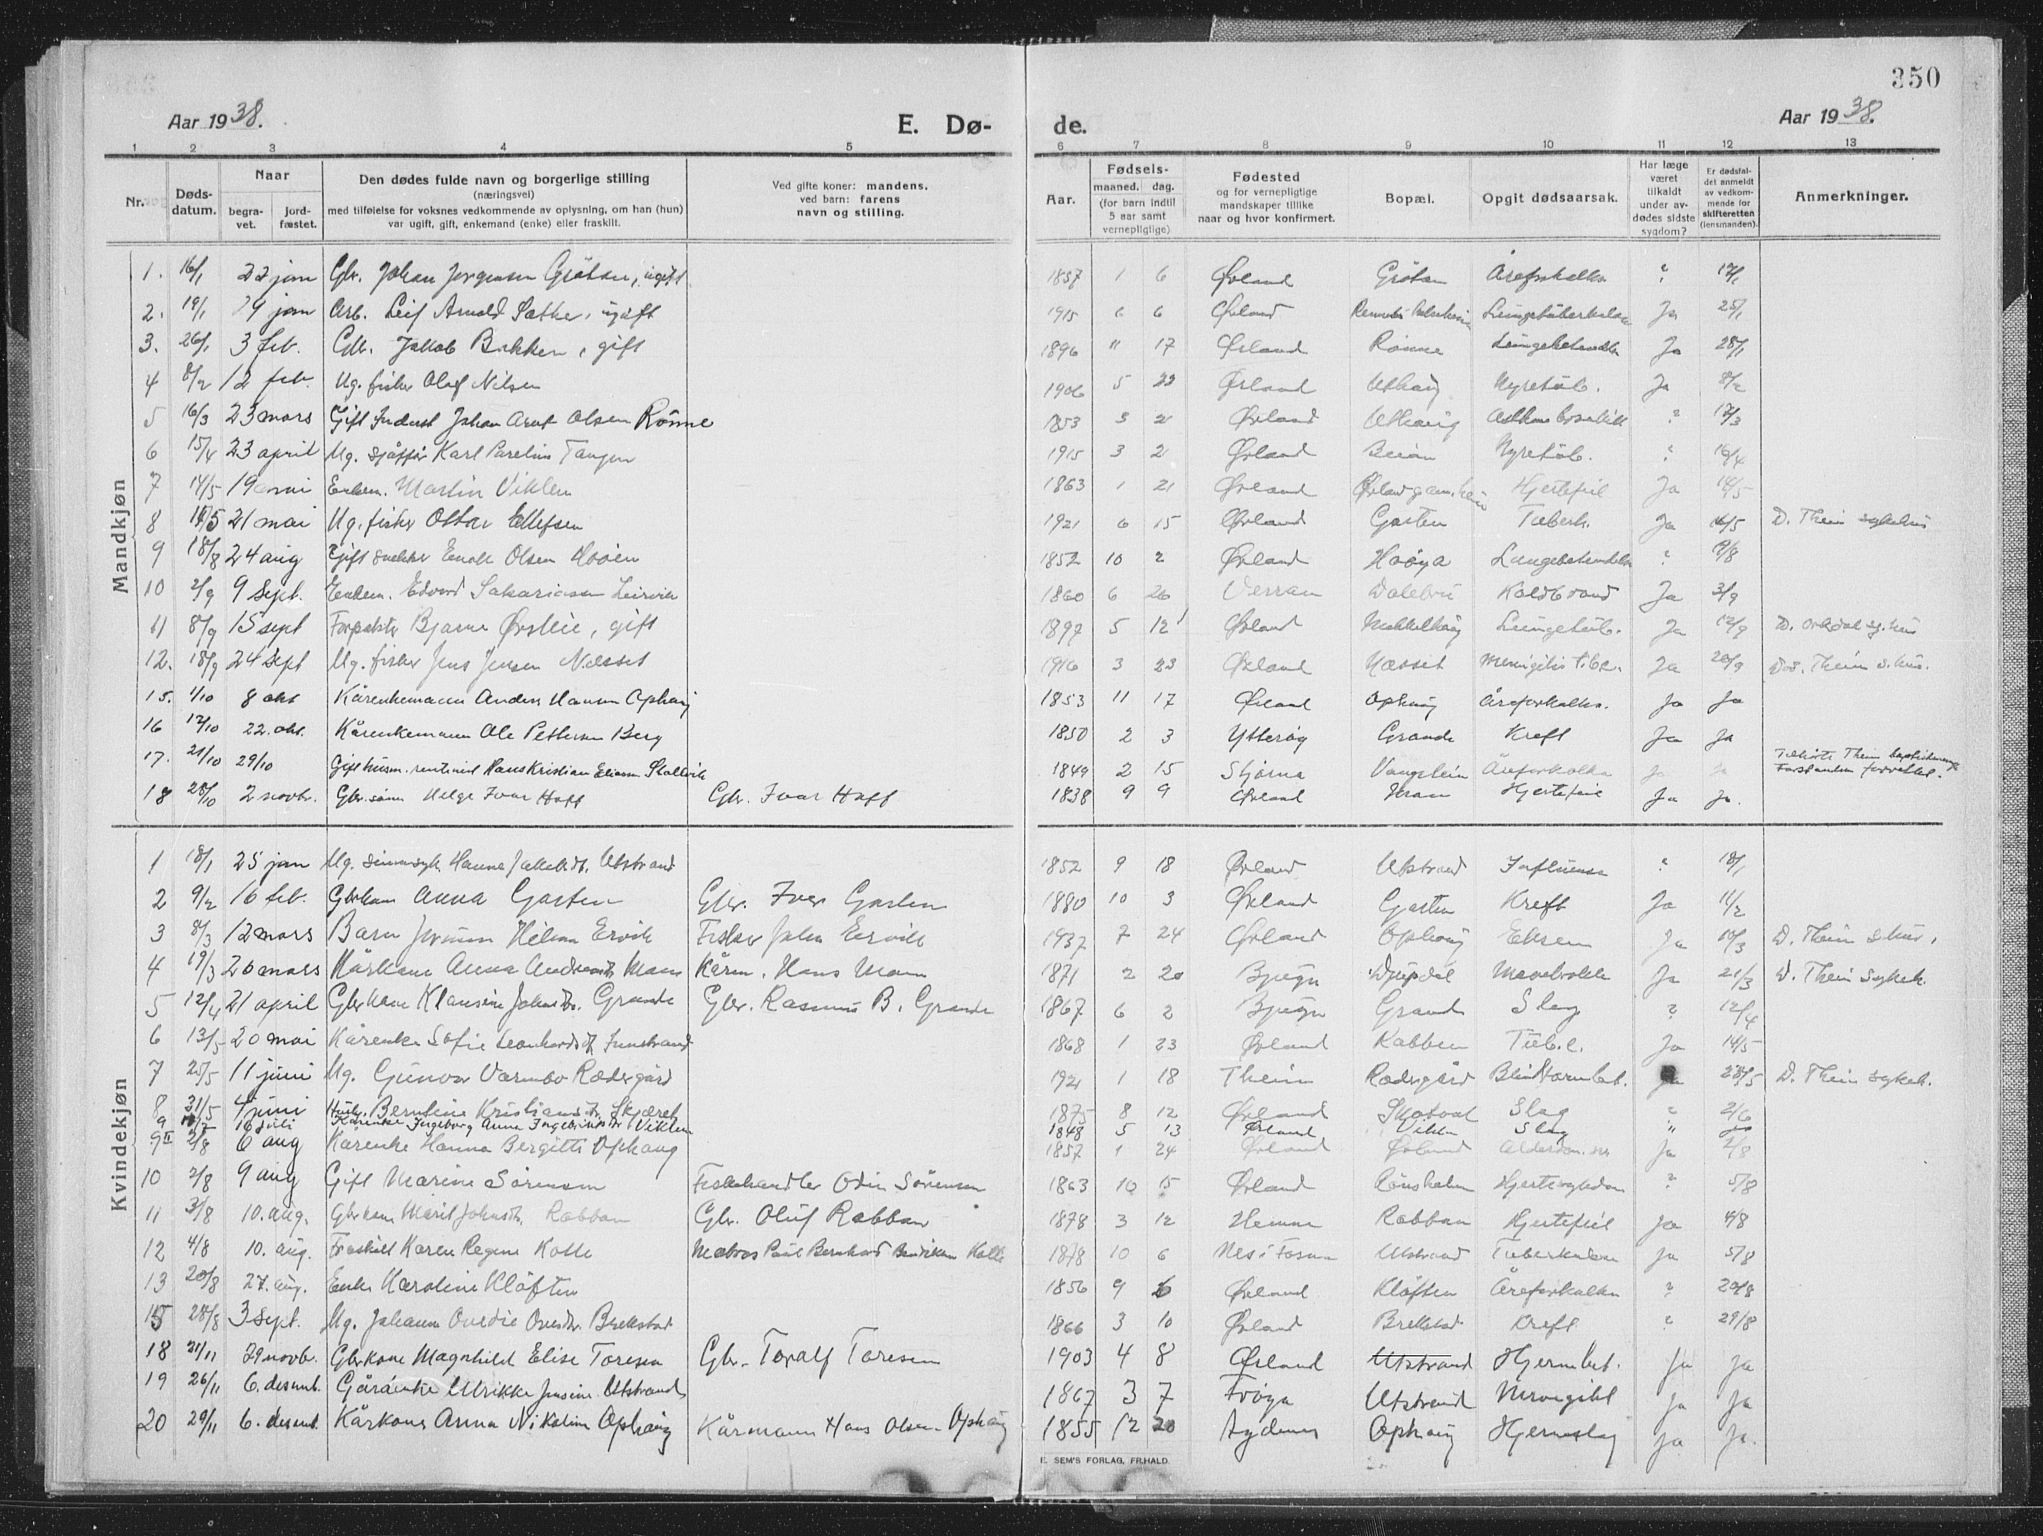 350
Aar 1938. E. Dø- de. Aar 1938.
1 2 3 4 5 6 7 8 9 10 11 12 13
Nr. Døds-datum. Naar begra-vet. jord-fæstet. Den dødes fulde navn og borgerlige stilling (næringsvei) med tilføielse for voksnes vedkommende av oplysning, om han (hun) var ugift, gift, enkemand (enke) eller fraskilt. Ved gifte koner: mandens. ved barn: farens navn og stilling. Aar. Fødsels- maaned. dag. (for barn indtil 5 aar samt vernepligtige) Fødested og for vernepligtige mandskaper tillike naar og hvor konfirmert. Bopæl. Opgit dødsaarsak. Har læge været tilkaldt under av-dødes sidste sygdom? Er dødsfal-det anmeldt av vedkom-mende for skifteretten (lensmanden). Anmerkninger.
Mandkjøn
1. 16/1 22 jan Gbr. Johan Jørgensen Grötan, ugift 1857 1 6 Ørland Grötan Åreforkalkn ? 17/1
2. 19/1 29 jan Arb. Leif Arnold Sæther, ugift 1915 6 6 Ørland Lungetuberkulose Ja 25/1
3. 26/1 3 feb. Gbr. Jakob Bakken, gift 1896 11 17 Ørland Rönne Lungebetendelse Ja 28/1
4 8/2 12 feb. Ug. fisker Olaf Nilsen 1906 5 22 Ørland Uthaug Nyretub. Ja 8/2
5 16/3 23 mars Gift Johan Arnt Olsen Rönne 1853 3 21 Ørland Uthaug ? 17/3
6 15/4 23 april Ug. sjåffør Karl Parelius Tangen 1915 3 21 Ørland Beian Nyretub. ? 16/4
7 14/5 19 mai Enkem. Martin Viklem 1863 1 21 Ørland Ørland gam.heim Hjertefeil Ja 14/5
8 14/5 21 mai Ug. fisker Ottar Ellefsen 1921 6 15 Ørland Garten Tuberk. Ja 16/5 D. Theim sykehus
9 18/8 24 aug Gift snekker Enok Olsen Hoöen 1852 10 2 Ørland Hoöya Lungebetendelse ? 19/8
10 2/9 9 sept. Enkem. Edvard Sakariasen Leirvik 1860 6 26 Verran Dalebu Koldbrand Ja 3/9
11 8/9 15 sept Forpakter Bjarne Ørstlie, gift 1897 5 12 Ørland Mækkelhaug Lungetub. Ja 12/9 D. Orkdal sj.hus
12. 18/9 24 sept Ug. fisker Jens Jensen Næsset 1916 3 23 Ørland Næsset Menigitis tube. Ja 20/9 Død. Theim s.hus.
15. 1/10 8 okt Kårenkemann Anders Hansen Ophaug 1853 11 17 Ørland Ophaug Åreforkalkn. Ja Ja
16 17/10 22. okt. Kårenkemann Ole Pettersen Berg 1850 2 3 Ytterøy Grande Kreft Ja Ja
17. 21/10 29/10 Gift husm. rentenist Hans Kristian Eliasen Stallvik 1849 2 15 Stjørna Vangstein Åreforkalkn Ja Ja
18 28/10 2 novbr. Gbr.sønn Helge Ivar Hoff Gbr. Ivar Hoff 1838 9 9 Ørland Hjertefeil Ja Ja.
Kvindekjøn
1 18/1 25 jan Ug. sinnssyk Hanna Jakobsdt. Utstrand 1852 9 18 Ørland Utstrand Influensa ? 18/1
2 9/2 16 feb. Gbrkone Anna Garten Gbr. Iver Garten 1880 10 3 Ørland Garten Kreft Ja 11/2
3 8/3 12 mars Barn Jorunn Helene Ervik Fisker John Ervik 1937 7 24 Ørland Ophaug Eksem Ja 10/3 D. Theim s.hus.
4 19/3 26 mars Kårkone Anna Andreasdt. Moan Kårm. Hans Moan 1871 2 20 Bjugn Djupdal Ja 21/3 D. Theim sykeh.
5 12/4 21 april Gbrkone Klausine Johnsdt. Grande Gbr. Rasmus B. Grande 1867 6 2 Bjugn Grande Slag ? 12/4
6 13/5 20 mai Kårenke Sofie Leonhardsdt. Innstrand 1868 1 23 Ørland Rabben Tub.l. Ja 14/5
7 25/5 11 juni Ug. Gunvor Varmbo Rødsgård 1921 1 18 Theim Rødsgård Blindtarmbet. Ja 28/5 D. Theim sykeh.
8 31/5 4 juni Husm. Berntine Kristiansdt. Skjæret 1875 8 12 Ørland Skatval Slag " 2/6
9 16 juli Kårenke Ingeborg Anna Ingebrigtsdt Viklem 1848 5 13 Ørland Viklem Slag " Ja
9II 2/8 6 aug Kårenke Hanna Bergitte Ophaug 1857 1 24 Ørland Ørland Ja 2/8
10 2/8 9 aug Gift Marine Sörensen Fiskehandler Odin Sörensen 1863 10 15 Ørland Lönsholm Hjertesykdom ? 5/8
11 3/8 10. aug. Gbrkone Marit Johnsdt. Rabban Gbr. Oluf Rabban 1878 3 12 Hemne Rabban Hjertefeil Ja 4/8
12 4/8 10. aug. Fraskilt Karen Regine Kotte Matros Paul Bernhard Benriksen Kotte 1878 10 6 Nes i Fosna Utstrand Tuberkulose Ja 5/8
13 20/8 27. aug. Enke Karoline Klöften 1856 9 6 Ørland Klöften Åreforkalkn ? 20/8
15 28/8 3 sept. Ug. Johanna Ovedie Ovesdtr. Brekstad 1866 3 10 Ørland Brekstad Kreft ? 29/8
18 21/11 29 novbr. Gbrkone Magnhild Elise Toresen Gbr. Toralf Toresen 1903 4 8 Ørland Utstrand Hjernbet. Ja Ja
19 26/11 6. desemb. Gårdenke Ulrikke Jensine Utstrand 1867 3 7 Frøya Utstrand Ja Ja
20 29/11 6. desemb. Kårkone Anna Nikoline Ophaug Kårmann Hans Olsen Ophaug 1855 12 20 Agdenes Ophaug Hjerneslag Ja Ja.
E. SEM'S FORLAG, FR.HALD.